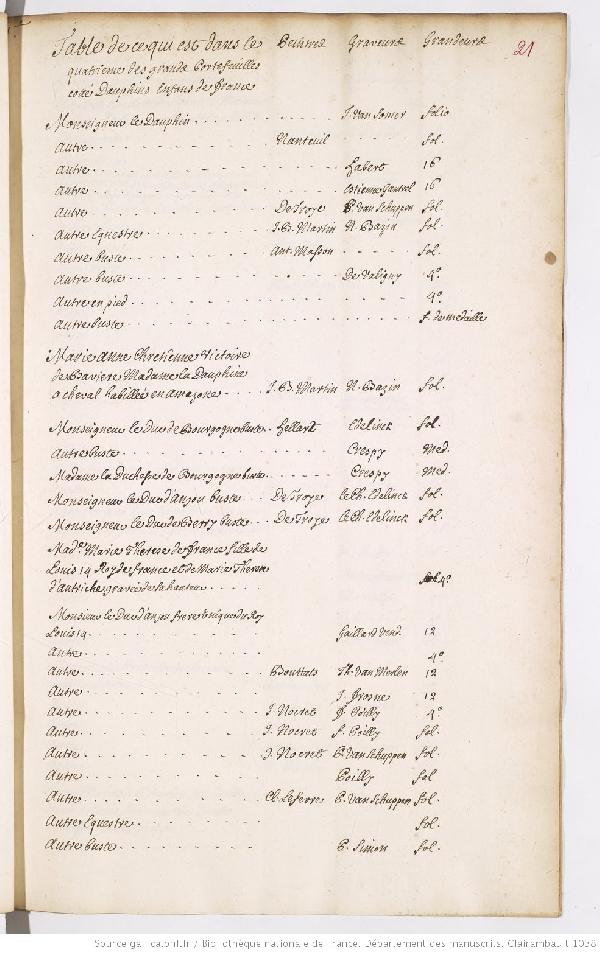 Table de ce qui est dans le Peintre Graveure Grandeure 21
quatrieme des grands Portefeuilles
cotté Dauphins Enfans de france
Monseigneur le Dauphin J. Van Somer folio
Autre Nanteuil fol.
Autre Habert 16
Autre Estienne Gantrel 16
Autre De Troye P. Van Schuppen fol.
Autre Equestre J. B. Martin N. Bazin fol.
Autre buste Ant. Masson fol.
Autre buste De Valigny 4º
Autre en pied 4º
Autre buste f. de medaille
Marie Anne Chretienne Victoire
de Baviere Madame la Dauphine
a cheval habillée en amazone J. B. Martin N. Bazin fol.
Monseigneur le Duc de Bourgogne buste Hellart Edelinck fol.
Autre buste Crespy Med.
Madame la Duchesse de Bourgogne buste Crespy Med.
Monseigneur le Duc d'anjou buste De Troye le Ch. Edelinck fol.
Monseigneur le Duc de Berry buste De Troye le Ch. Edelinck fol.
Made. Marie Therese de france fille de
Louis 14 Roy de france et de Marie Therese
d'autriche gravée de sa hauteur 4º
Monsieur le Duc d'anjou frere unique du Roy
Louis 14 Gaillard vend. 12
Autre 4º
Autre Bouttats Th. Van Merlen 12
Autre J. Frosne 12
Autre J. Nocret J. Poilly 4º
Autre J. Nocret f. Poilly fol.
Autre J. Nocret P. Van Schuppen fol.
Autre Poilly fol
Autre Cl. Lefevre P. Van Schuppen fol.
Autre Equestre fol.
Autre buste P. Simon fol.
Source gallica.bnf.fr / Bibliothèque nationale de France. Département des manuscrits. Clairambault 1038